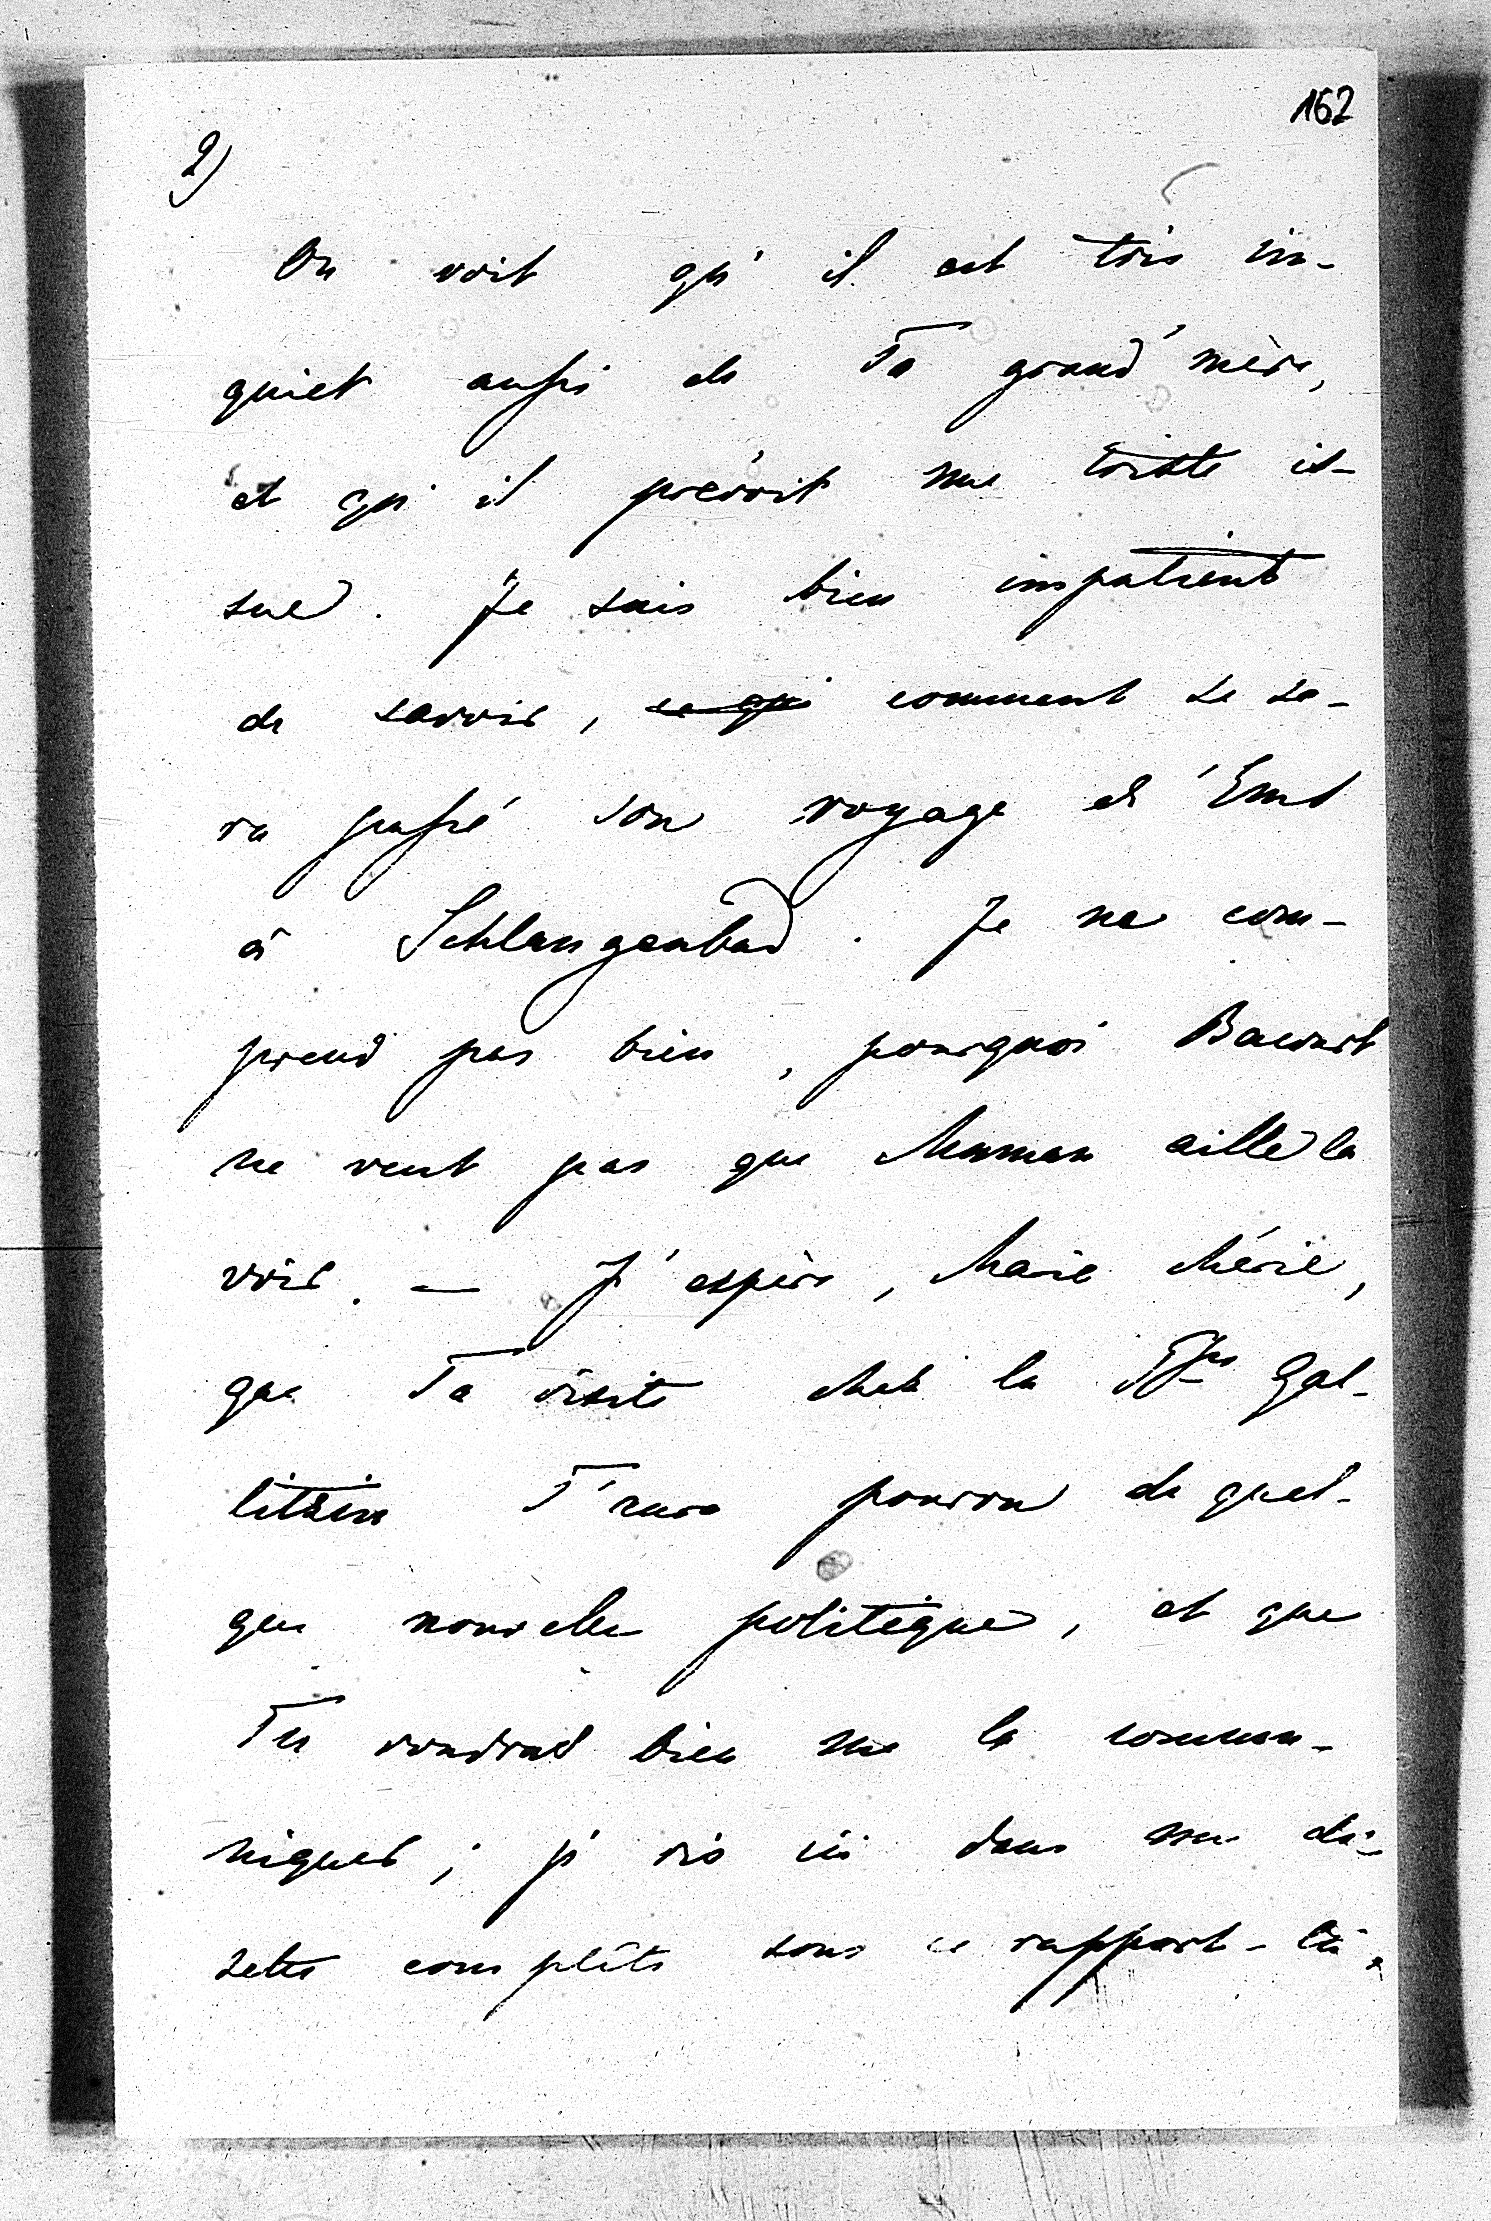 162
2)
On voit qu'il est très in-
quiet aussi de Ta grand'mère,
et qu'il prévoit une triste is-
sue. Je suis bien impatient
de savoir, ce qui comment se se-
ra passé son voyage d'Ems
à Schlangenbad. Je ne com-
prend pas bien, pourquoi Bacourt
ne veut pas que Maman aille la
voir. — J'espère, Marie chérie,
que Ta visite chez la Psse Gal-
litzin T'aura pourvu de quel-
que nouvelle politique, et que
Tu voudras bien me la commu-
niquer; je vis ici dans une di-
sette complète sous ce rapport-là.